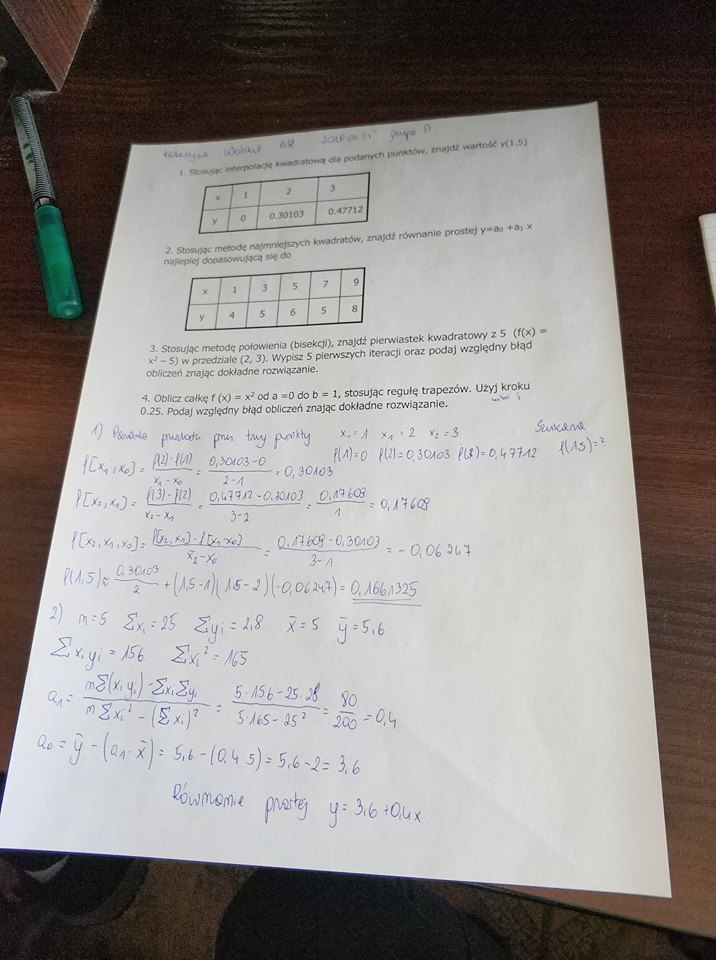 2020.01.31 grupa A
1. Stosując interpolację kwadratową dla podanych punktów, znajdź wartość y(1.5)
x 1 2 3
y 0 0.30103 0.47712
2. Stosując metodę najmniejszych kwadratów, znajdź równanie prostej y=a₀ +a₁ x
najlepiej dopasowującą się do
x 1 3 5 7 9
y 4 5 6 5 8
3. Stosując metodę połowienia (bisekcji), znajdź pierwiastek kwadratowy z 5 (f(x) =
x² – 5) w przedziale (2, 3). Wypisz 5 pierwszych iteracji oraz podaj względny błąd
obliczeń znając dokładne rozwiązanie.
4. Oblicz całkę f (x) = x² od a =0 do b = 1, stosując regułę trapezów. Użyj kroku
0.25. Podaj względny błąd obliczeń znając dokładne rozwiązanie.
1) Parabola przechodzi przez trzy punkty x₀=1 x₁=2 x₂=3 Szukane
f(1)=0 f(2)=0,30103 f(3)=0,47712 f(1,5)=?
f[x₁,x₀]= f(2)-f(1) / x₁-x₀ = 0,30103-0 / 2-1 = 0,30103
f[x₂,x₁]= f(3)-f(2) / x₂-x₁ = 0,47712-0,30103 / 3-2 = 0,17609 / 1 = 0,17609
f[x₂,x₁,x₀]= f[x₂,x₁]-f[x₁,x₀] / x₂-x₀ = 0,17609-0,30103 / 3-1 = -0,06247
f(1,5)≈ 0,30103 / 2 +(1,5-1)(1,5-2)(-0,06247)= 0,1661325
2) n=5 Σxᵢ=25 Σyᵢ=2,8 x̄=5 ȳ=5,6
Σxᵢyᵢ=156 Σxᵢ²=165
a₁= nΣ(xᵢyᵢ)-ΣxᵢΣyᵢ / nΣxᵢ²-(Σxᵢ)² = 5·156-25·28 / 5·165-25² = 80 / 200 =0,4
a₀=ȳ-(a₁·x̄)=5,6-(0,4·5)=5,6-2=3,6
Równanie prostej y=3,6+0,4x